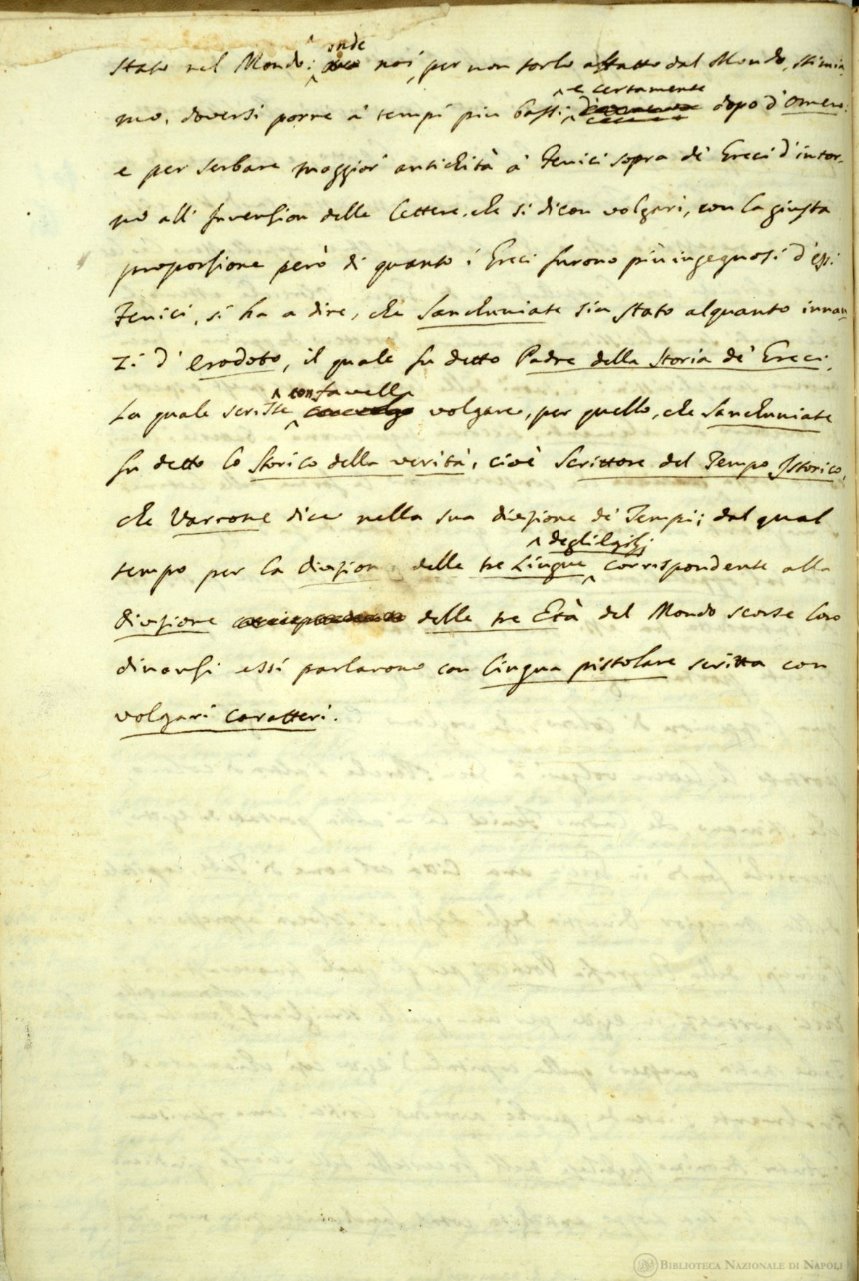 stato nel Mondo: onde noi, per non torlo affatto dal Mondo, stimia-
mo, doversi porre a' tempi più bassi, e certamente dopo d'Omero:
e per serbare maggior' antichità a' Fenici sopra de' Greci d'intor-
no all' Invenzion delle Lettere, che si dicon volgari, con la giusta
proporzione però di quanto i Greci furono più ingegnosi d'essi
Fenici, si ha a dire, che Sancuniate sia stato alquanto innan-
zi d' Erodoto, il quale fu detto Padre della Storia de' Greci,
la quale scrisse con favella volgare, per quello, che Sancuniate
fu detto lo Storico della verità, cioè Scrittore del Tempo Istorico,
che Varrone dice nella sua divisione de' Tempi; dal qual
tempo per la divisione delle tre Lingue degli Egizj corrispondente alla
divisione delle tre Età del Mondo scorse loro
dinanzi essi parlarono con lingua pistolare scritta con
volgari caratteri.
BIBLIOTECA NAZIONALE DI NAPOLI